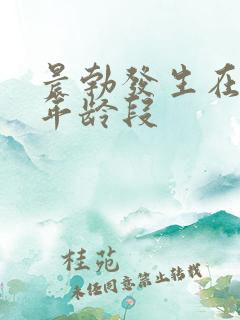 晨勃發生在
年龄段
桂苑
未经同意禁止转载